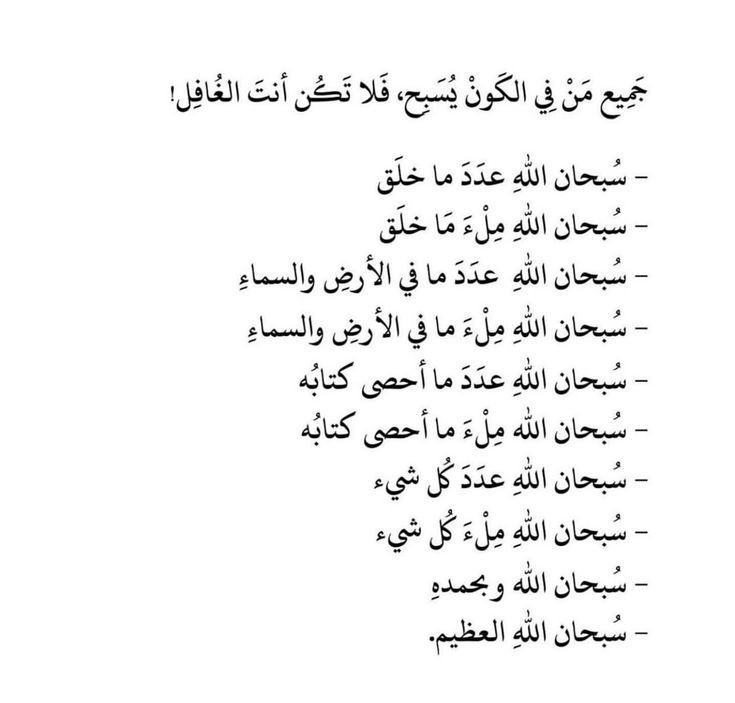 جَمِيع مَنْ فِي الكَونْ يُسَبِح، فَلا تَكُن أنتَ الغُافِل!
– سُبحان اللهِ عدَدَ ما خلَق
– سُبحان اللهِ مِلْءَ مَا خلَق
– سُبحان اللهِ عدَدَ ما في الأرضِ والسماءِ
– سُبحان اللهِ مِلْءَ ما في الأرضِ والسماءِ
– سُبحان اللهِ عدَدَ ما أحصى كتابُه
– سُبحان الله مِلْءَ ما أحصى كتابُه
– سُبحان اللهِ عدَدَ كُل شيء
– سُبحان اللهِ مِلْءَ كُل شيء
– سُبحان الله وبحمدهِ
– سُبحان اللهِ العظيم.